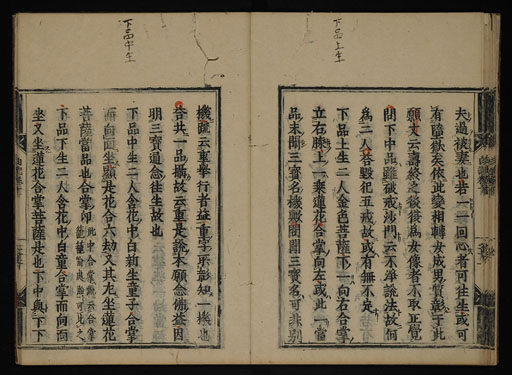 下品上生
夫過彼妻也若一一回心者可往生或可
有障歟矣依此變相轉女成男質彰于此
願文云壽終之後復爲女像者不取正覺
問下中品雖破戒沙門云不淨說法故何
爲二人答毀犯五戒故或有無不定
下品上生二人金色菩薩下一
立右膝上一乘蓮花合掌向左或此一當
品未聞三寶名機歟問聞三寶名可非別
下品中生
機云重舉行者益重字示彰知一機也
答共一品攝故云重是說本願念佛益因
明三寶通念往生故也
下品中生二人含花中白新生童子合掌
而向西坐顯是花合六劫又其左坐蓮花
菩薩當品也合掌印
下品下生二人含花中白童合掌而向西
坐又坐蓮花合掌菩薩是也下中與下下